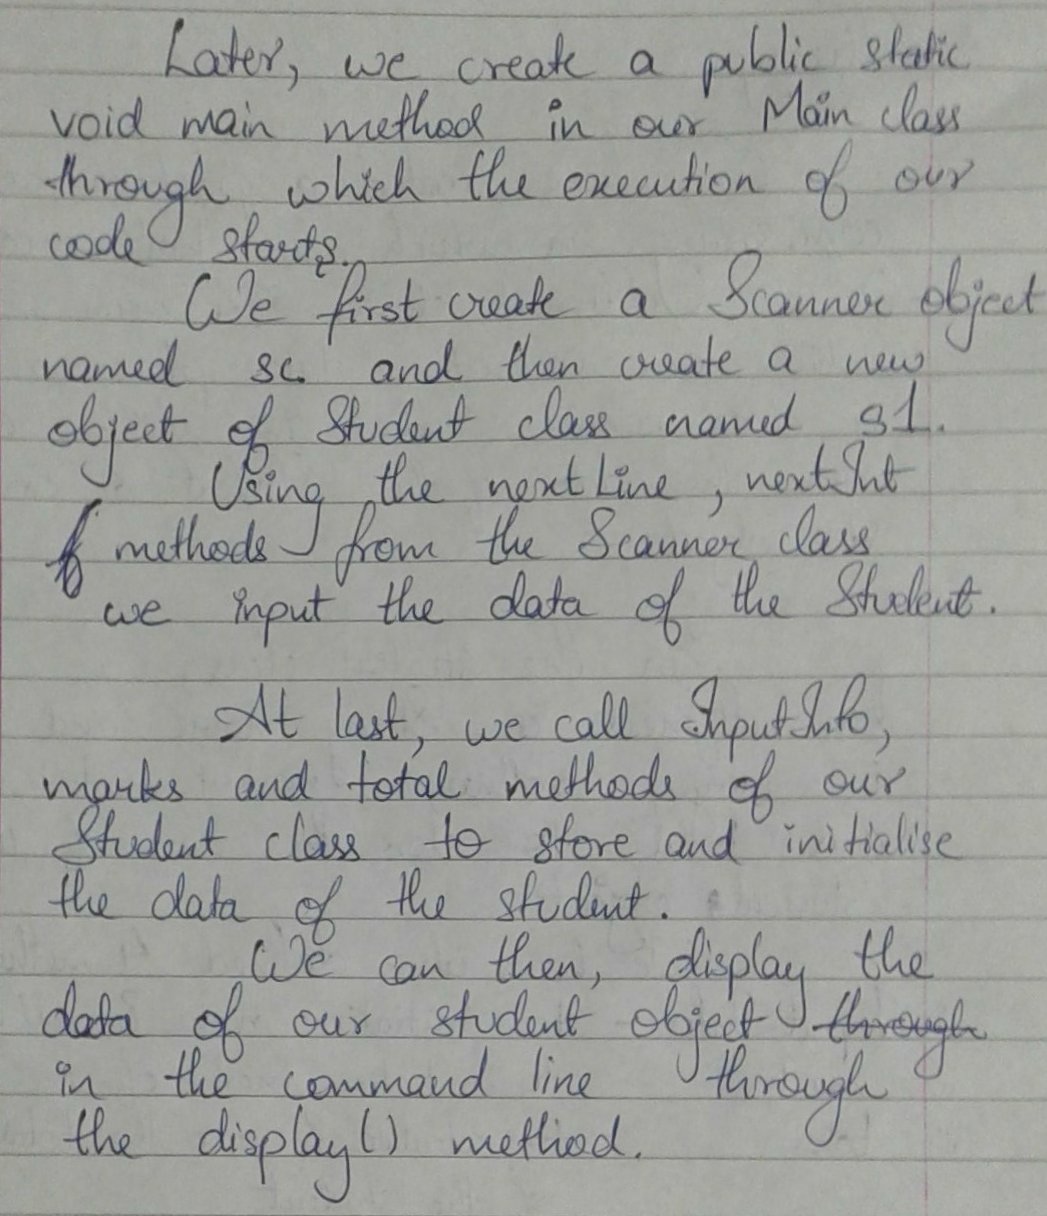 Later, we create a public static
void main method in our Main class
through which the execution of our
code starts.
We first create a Scanner object
named sc. and then create a new
object of Student class named s1.
Using the nextLine, nextInt
methods from the Scanner class
we input the data of the Student.
At last, we call InputInfo,
marks and total methods of our
Student class to store and initialise
the data of the student.
We can then, display the
data of our student object through
in the command line through
the display() method.